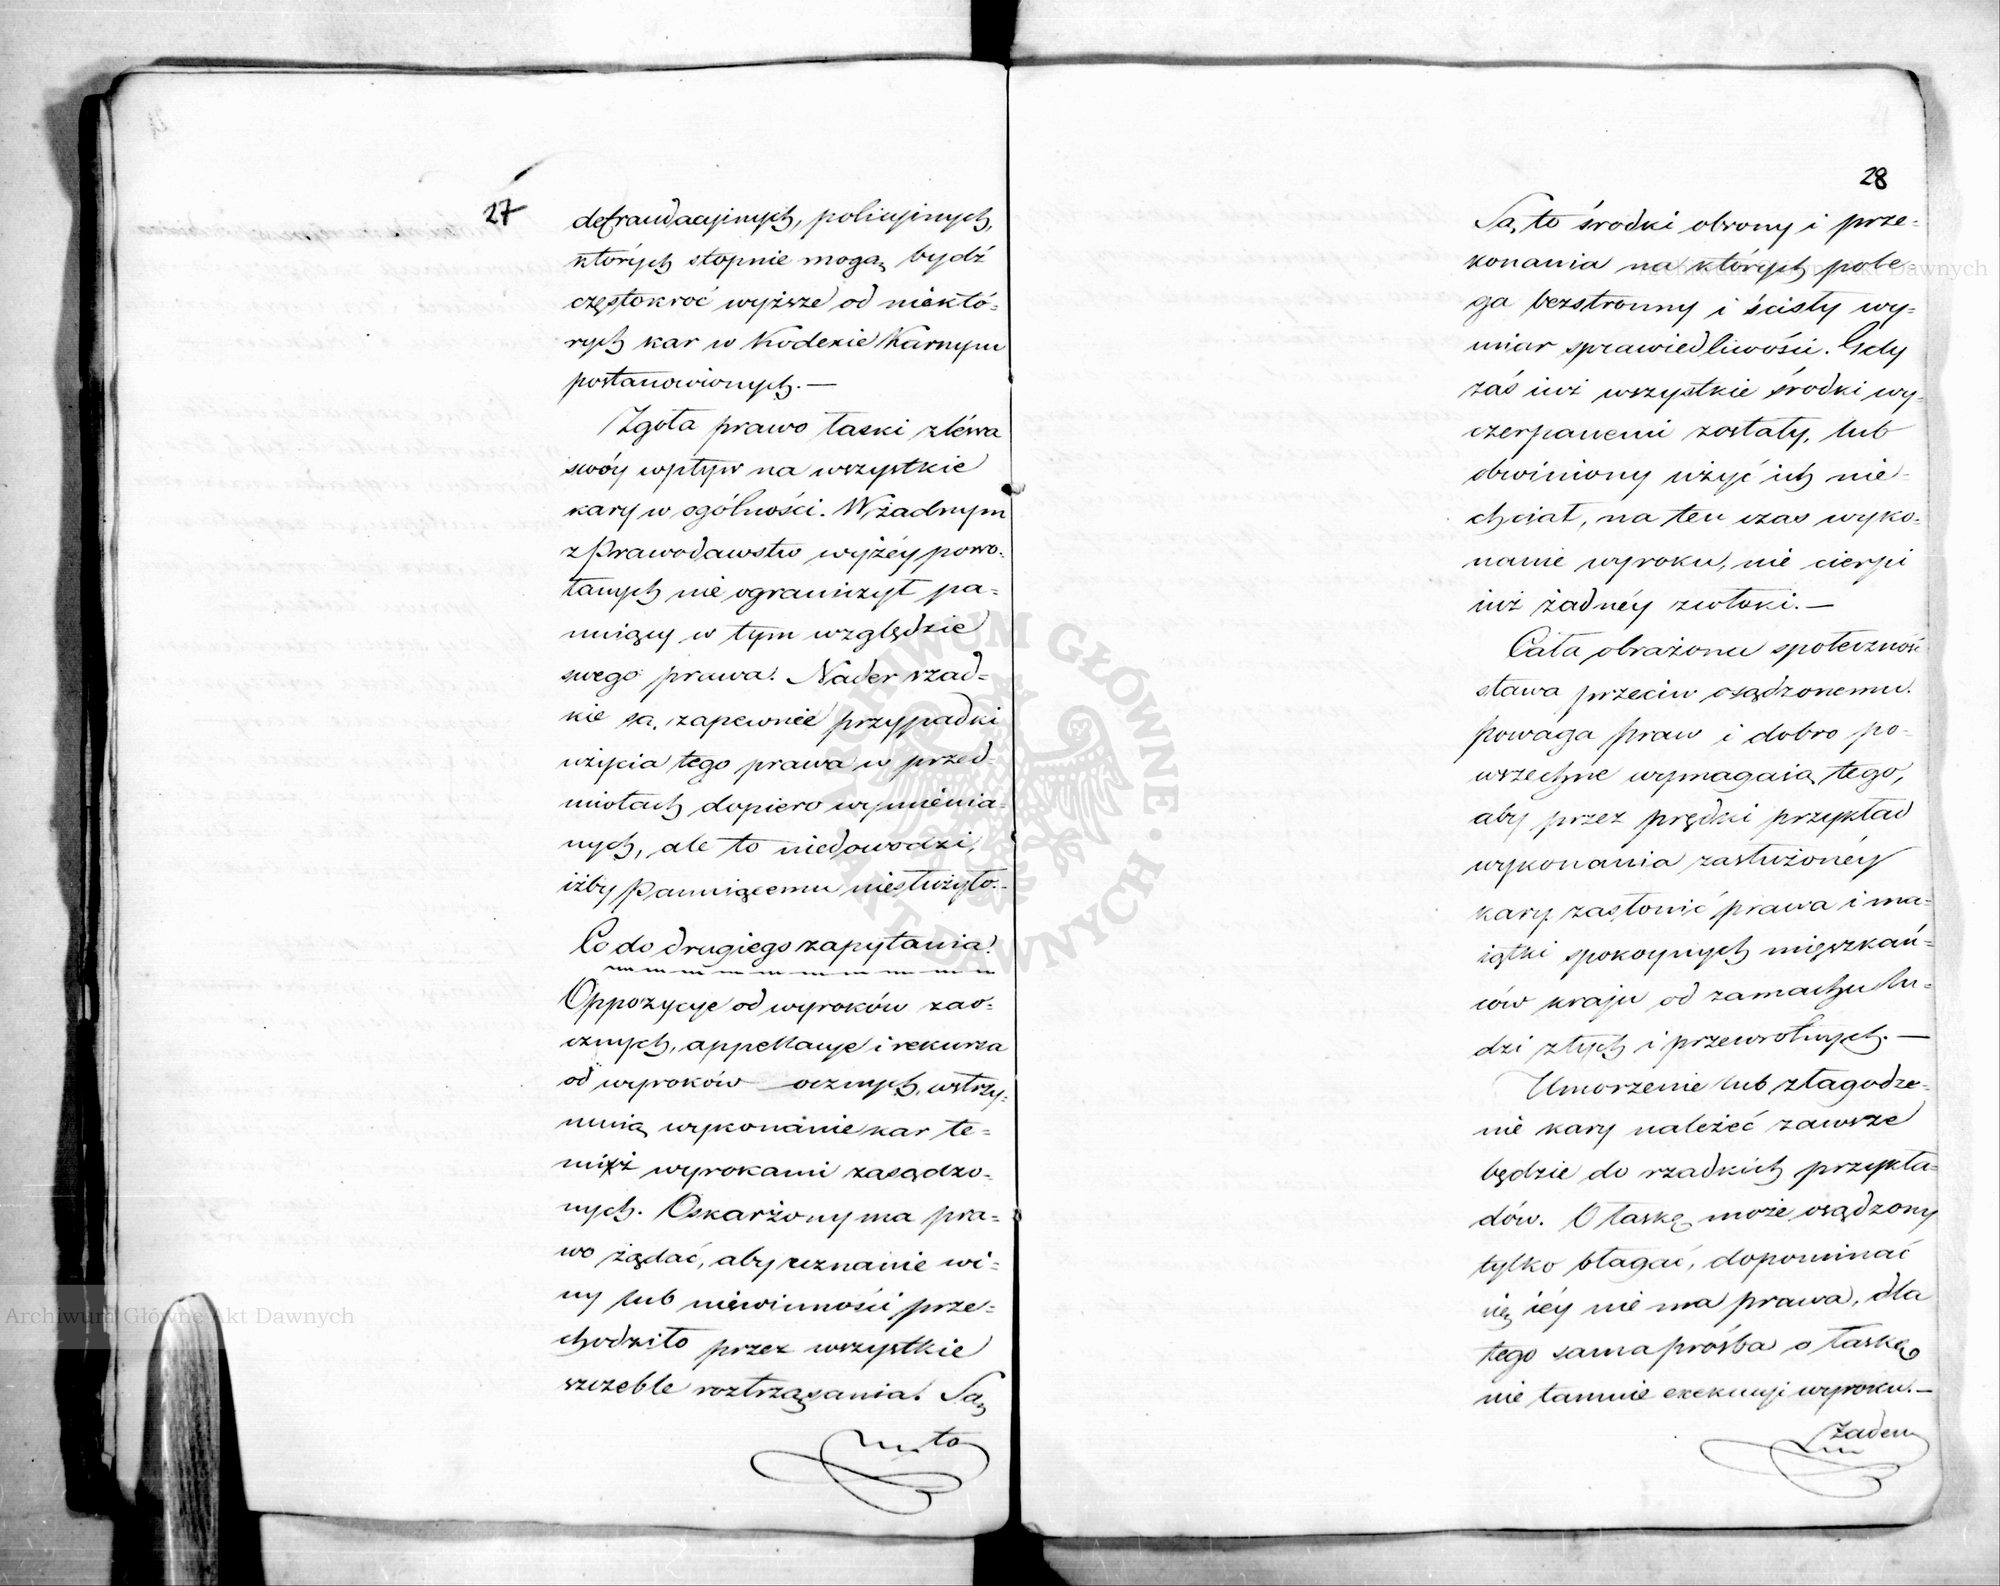 27
defraudacyinych, policyinych,
których stopnie mogą bydź
częstokroć wyższe od niektó-
rych kar w Kodexie Karnym
postanowionych. —
Zgoła prawo łaski zléwa
swóy wpływ na wszystkie
kary w ogólności. W żadnym
z Prawodawstw wyżéy powo-
łanych nie ograniczył pa-
nuiący w tym względzie
swego prawa. Nader rzad-
kie są zapewnie przypadki
użycia tego prawa w przed-
miotach dopiero wymienia-
nych, ale to niedowodzi,
iżby Panuiącemu niesłużyło.
Co do drugiego zapytania.
Oppozycye od wyroków zao-
cznych, appellacye i rekursa
od wyroków ocznych, wstrzy-
muią wykonanie kar te-
miż wyrokami zasądzo-
nych. Oskarżony ma pra-
wo żądać, aby uznanie wi-
ny lub niewinności prze-
chodziło przez wszystkie
szczeble roztrząsania. Są
to
28
Są to środki obrony i prze-
konania na których pole-
ga bezstronny i ścisły wy-
miar sprawiedliwości. Gdy
zaś iuż wszystkie środki wy-
czerpanemi zostały, lub
obwiniony użyć ich nie-
chciał, na ten czas wyko-
nanie wyroku, nie cierpi
iuż żadnéy zwłoki. —
Cała obrażona społeczność
stawa przeciw osądzonemu.
Powaga Praw i dobro po-
wszechne wymagaią tego,
aby przez prędki przykład
wykonania zasłużonéy
kary zasłonić prawa i ma-
iątki spokoynych mięszkań-
ców kraju od zamachu lu-
dzi złych i przewrotnych. —
Umorzenie lub złagodze-
nie kary należéć zawsze
będzie do rzadkich przykła-
dów. O łaskę może osądzony
tylko błagać, dopominać
się iéy nie ma prawa, dla
tego sama prośba o łaskę
nie tamuie exekucyi wyroku. —
Żaden
Archiwum Główne Akt Dawnych
ARCHIWUM GŁÓWNE AKT DAWNYCH
Archiwum Główne Akt Dawnych